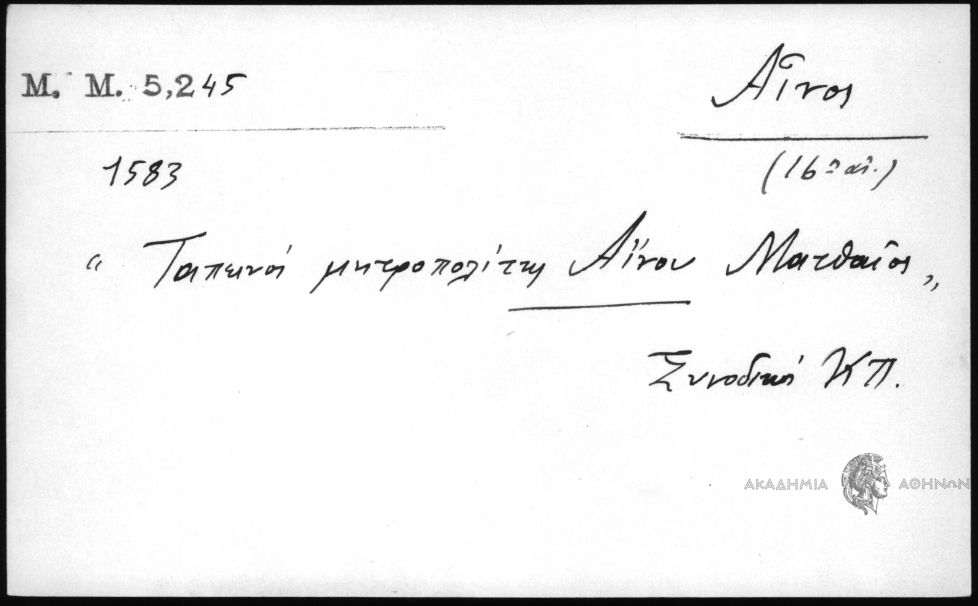 M. M. 5,245
Αἶνος
1583
(16ος αἰ.)
“ Ταπεινὸς μητροπολίτης Αἴνου Ματθαῖος „
Συνοδικὸ ΚΠ.
ΑΚΑΔΗΜΙΑ ΑΘΗΝΩΝ